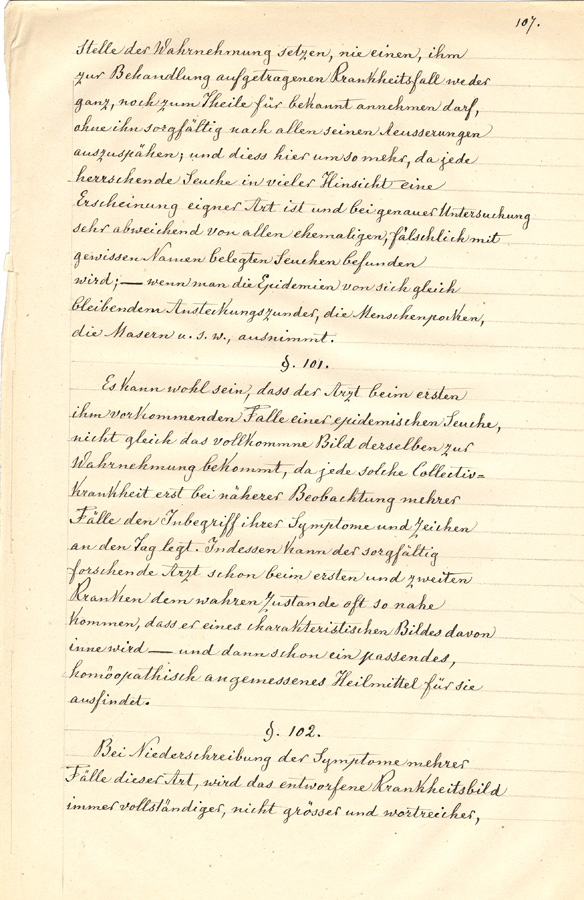 107.
Stelle der Wahrnehmung setzen, nie einen, ihm
zur Behandlung aufgetragenen Krankheitsfall weder
ganz, noch zum Theile für bekannt annehmen darf,
ohne ihn sorgfältig nach allen seinen Aeusserungen
auszuspähen; und diess hier um so mehr, da jede
herrschende Seuche in vieler Hinsicht eine
Erscheinung eigner Art ist und bei genauer Untersuchung
sehr abweichend von allen ehemaligen, fälschlich mit
gewissen Namen belegten Seuchen befunden
wird; — wenn man die Epidemien von sich gleich
bleibendem Ansteckungszunder, die Menschenpocken,
die Masern u. s. w., ausnimmt.
§. 101.
Es kann wohl sein, dass der Arzt beim ersten
ihm vorkommenden Falle einer epidemischen Seuche,
nicht gleich das vollkommne Bild derselben zur
Wahrnehmung bekommt, da jede solche Collectiv=
Krankheit erst bei näherer Beobachtung mehrer
Fälle den Inbegriff ihrer Symptome und Zeichen
an den Tag legt. Indessen kann der sorgfältig
forschende Arzt schon beim ersten und zweiten
Kranken dem wahren Zustande oft so nahe
kommen, dass er eines charakteristischen Bildes davon
inne wird — und dann schon ein passendes,
homöopathisch angemessenes Heilmittel für sie
ausfindet.
§. 102.
Bei Niederschreibung der Symptome mehrer
Fälle dieser Art, wird das entworfene Krankheitsbild
immer vollständiger, nicht grösser und wortreicher,